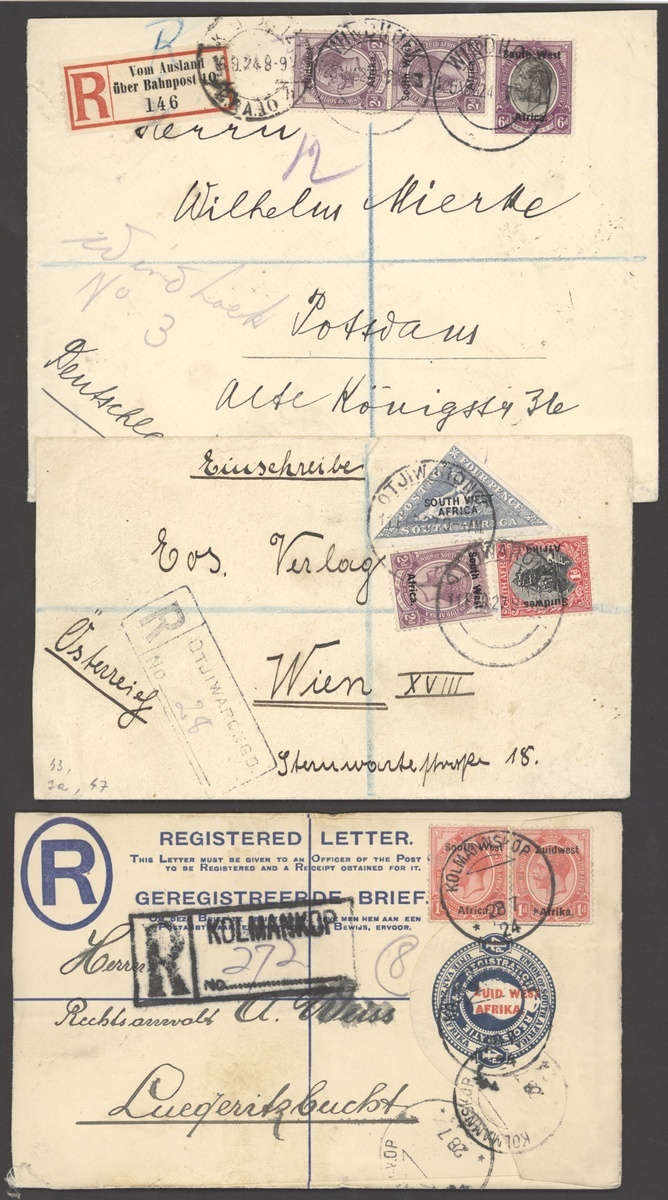 R
Vom Ausland
über Bahnpost 10
146
South West
Africa.
6d 6d
Herrn
Wilhelm Mierke
Windhoek
No 3
Potsdam
Alte Königstr 36
Einschreibe
OTJIWARONGO
FOUR PENCE
SOUTH WEST
AFRICA
SOUTH AFRICA
Eos. Verlag
South West
Africa.
Suidwes
Afrika.
Österreich
R
No 28
OTJIWARONGO
Wien XVIII
Sternwartestraße 18.
43,
3a, 47
R
REGISTERED LETTER.
THIS LETTER MUST BE GIVEN TO AN OFFICER OF THE POST
TO BE REGISTERED AND A RECEIPT OBTAINED FOR IT.
GEREGISTREERDE BRIEF.
BEWIJS, ERVOOR.
South West Zuidwest
Africa. Afrika.
KOLMANSKOP
28 7
24
R
KOLMANKOP
No. 272
8
Herrn
Rechtsanwalt A. Weiss
ZUID. WEST
AFRIKA.
Luederitzbucht
KOLMANSKOP
28 7